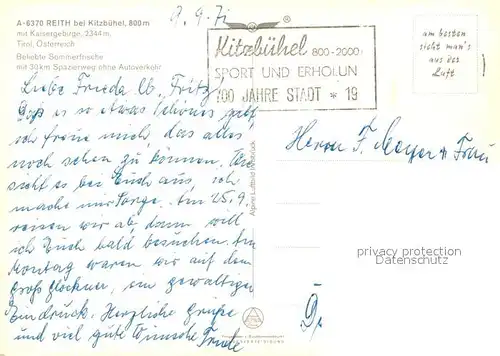 A-6370 REITH bei Kitzbühel, 800 m
mit Kaisergebirge, 2344 m,
Tirol, Österreich
Beliebte Sommerfrische
mit 30 km Spazierweg ohne Autoverkehr
9.9.71
Kitzbühel 800-2000
SPORT UND ERHOLUN
700 JAHRE STADT * 19
am besten
sieht man's
aus der
Luft
Liebe Frieda lb. Fritz,
Daß es so etwas Schönes gibt,
ich freue mich, das alles
noch sehen zu können. Wie
sieht es bei Euch aus, ich
mache mir Sorge. Am 25.9.
reisen wir ab, dann will
ich Euch bald besuchen. Am
Montag waren wir auf dem
Großglockner, ein gewaltiger
Eindruck. Herzliche Grüße
und viel gute Wünsche
Herrn F. Meyer u Frau
Alpine Luftbild Innsbruck
privacy protection